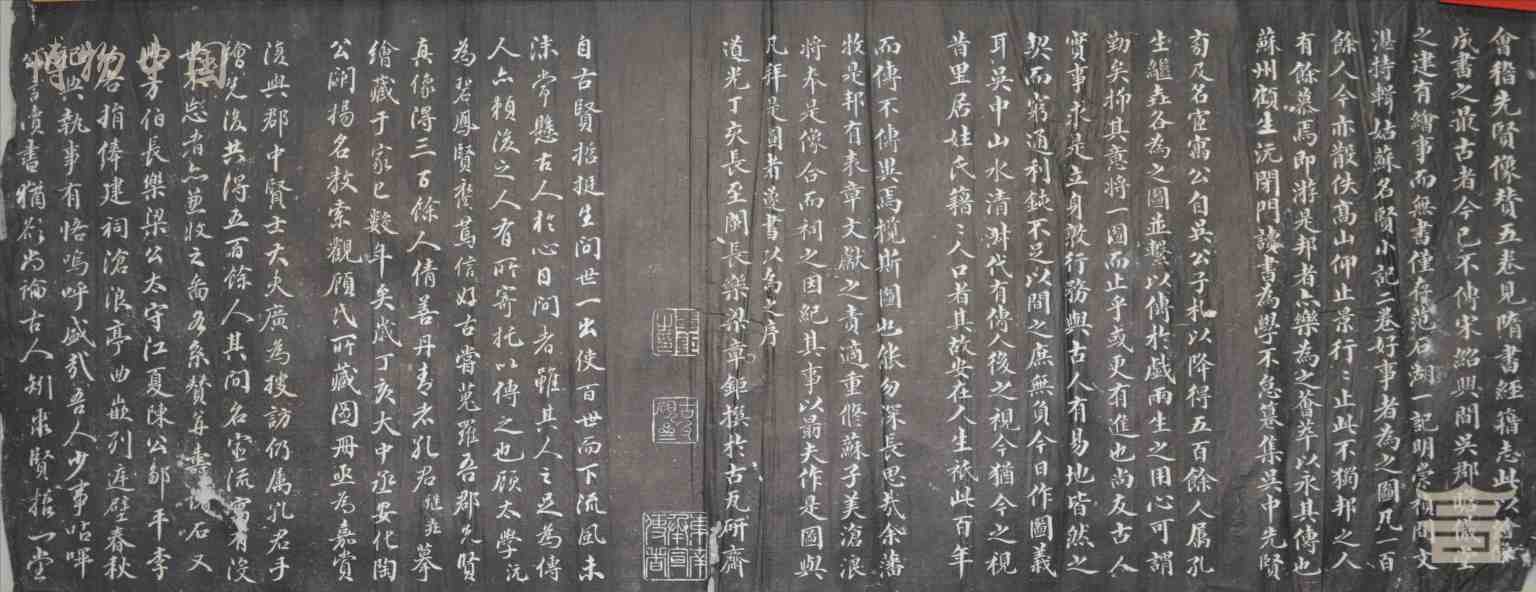 會稽先賢像贊五卷見隋書經籍志此以繪像
成書之最古者今已不傳宋紹興間吳郡
之建有繪事而無書僅存范石湖一記明崇禎間文
湛持輯姑蘇名賢小記二卷好事者為之圖凡一百
餘人今亦散佚高山仰止景行〻止此不獨邦之人
有餘慕焉即游是邦者亦樂為之薈萃以永其傳也
蘇州顧生沅閉門讀書為學不怠纂集吳中先賢
苟及名宦寓公自吳公子札以降得五百餘人屬孔
生繼垚各為之圖並繫以傳於戲兩生之用心可謂
勤矣抑其意將一圖而止乎或更有進也尚友古人
實事求是立身敦行務與古人有易地皆然之
契而窮通利鈍不足以間之庶無負今日作圖義
耳吳中山水清淑代有傳人後之視今猶今之視
昔里居姓氏籍〻人口者其故安在人生祇此百年
而傳不傳異焉攬斯圖也能勿深長思哉余藩
牧是邦有表章文獻之責適重修蘇子美滄浪
將本是像合而祠之因紀其事以勗夫作是圖與
凡拜是圖者遂書以為之序
道光丁亥長至閩長樂梁章鉅撰於古瓦研齋
自古賢哲挺生間世一出使百世而下流風未
沫常懸古人於心目間者雖其人之足為傳
人亦賴後之人有所寄托以傳之也顧太學沅
為碧鳳賢裔篤信好古嘗蒐羅吾郡先賢
真像得三百餘人倩善丹青者孔君繼垚摹
繪藏于家已數年矣歲丁亥大中丞安化陶
公闡揚名教索觀顧氏所藏圖冊亟為嘉賞
復與郡中賢士大夫廣為搜訪仍属孔君手
繪先後共得五百餘人其間名宦流寓有沒
世不忘者亦兼收之爰各系贊并壽諸石又
與方伯長樂梁公太守江夏陳公鄒平李
公各捐俸建祠滄浪亭曲嵌列遅壁春秋
祀典執事有恪嗚呼盛哉吾人少事呫嗶
讀書猶必尚論古人矧衆賢哲一堂
博物中国